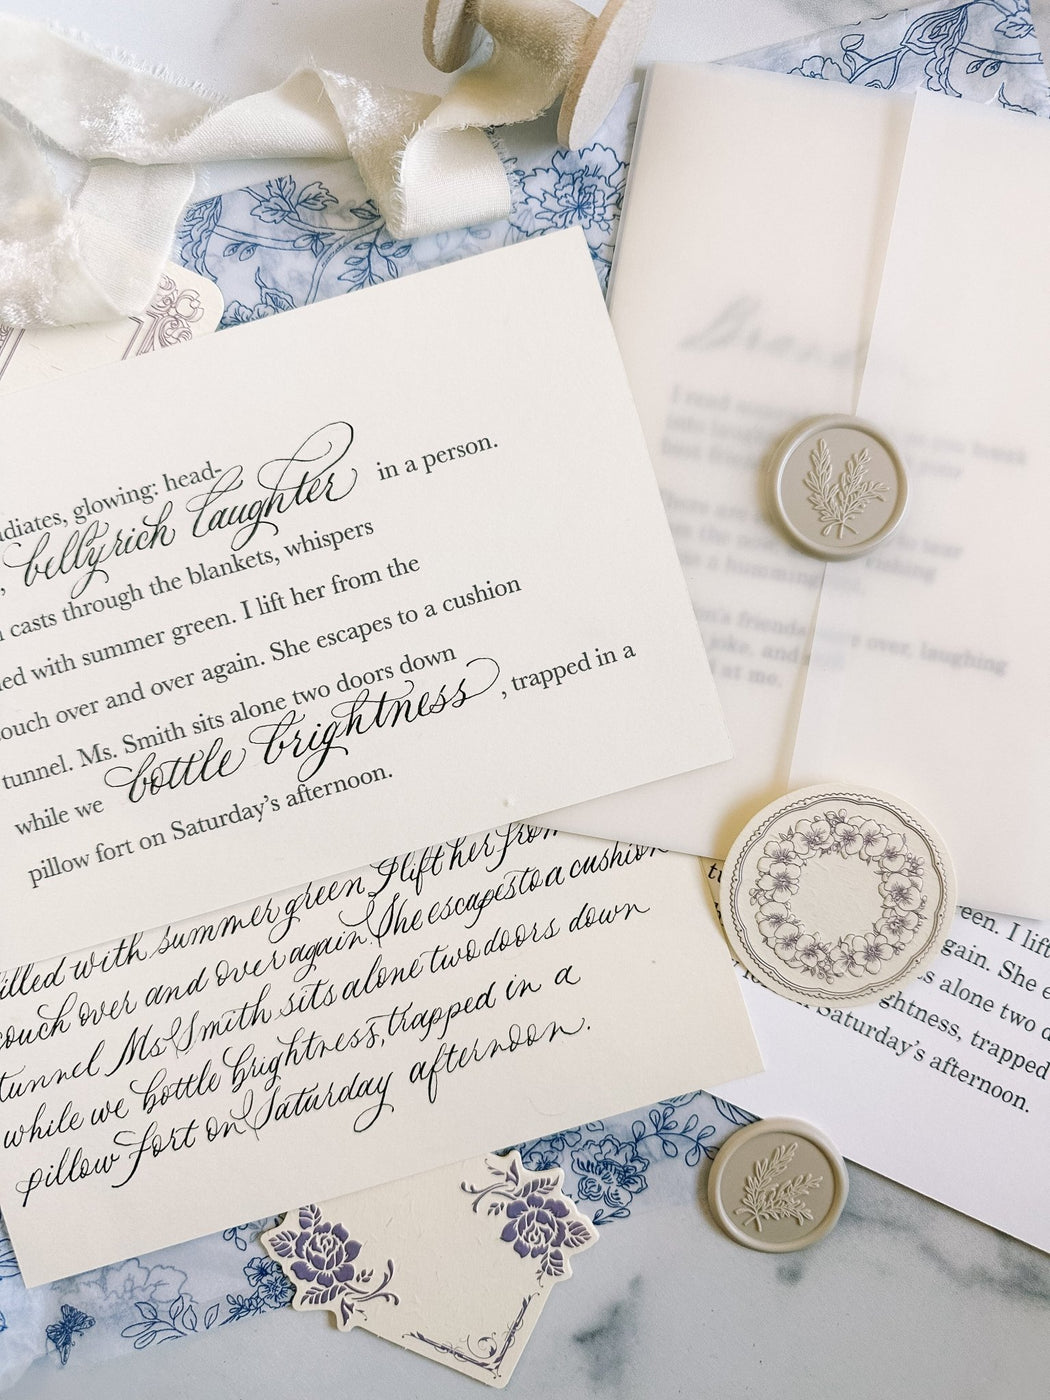 adiates, glowing: head-
, bellyrich laughter in a person.
casts through the blankets, whispers
led with summer green. I lift her from the
ouch over and over again. She escapes to a cushion
tunnel. Ms. Smith sits alone two doors down
while we bottle brightness, trapped in a
pillow fort on Saturday's afternoon.
filled with summer green I lift her from
couch over and over again. She escapes to a cushion
tunnel Ms Smith sits alone two doors down
while we bottle brightness, trapped in a
pillow fort on Saturday afternoon.
I read
you break
into
best
There are
to hear
on the
wishing
a hummingbird.
friends
over, laughing
joke, and
at me.
een. I lift
gain. She e
s alone two d
ghtness, trapped
Saturday's afternoon.